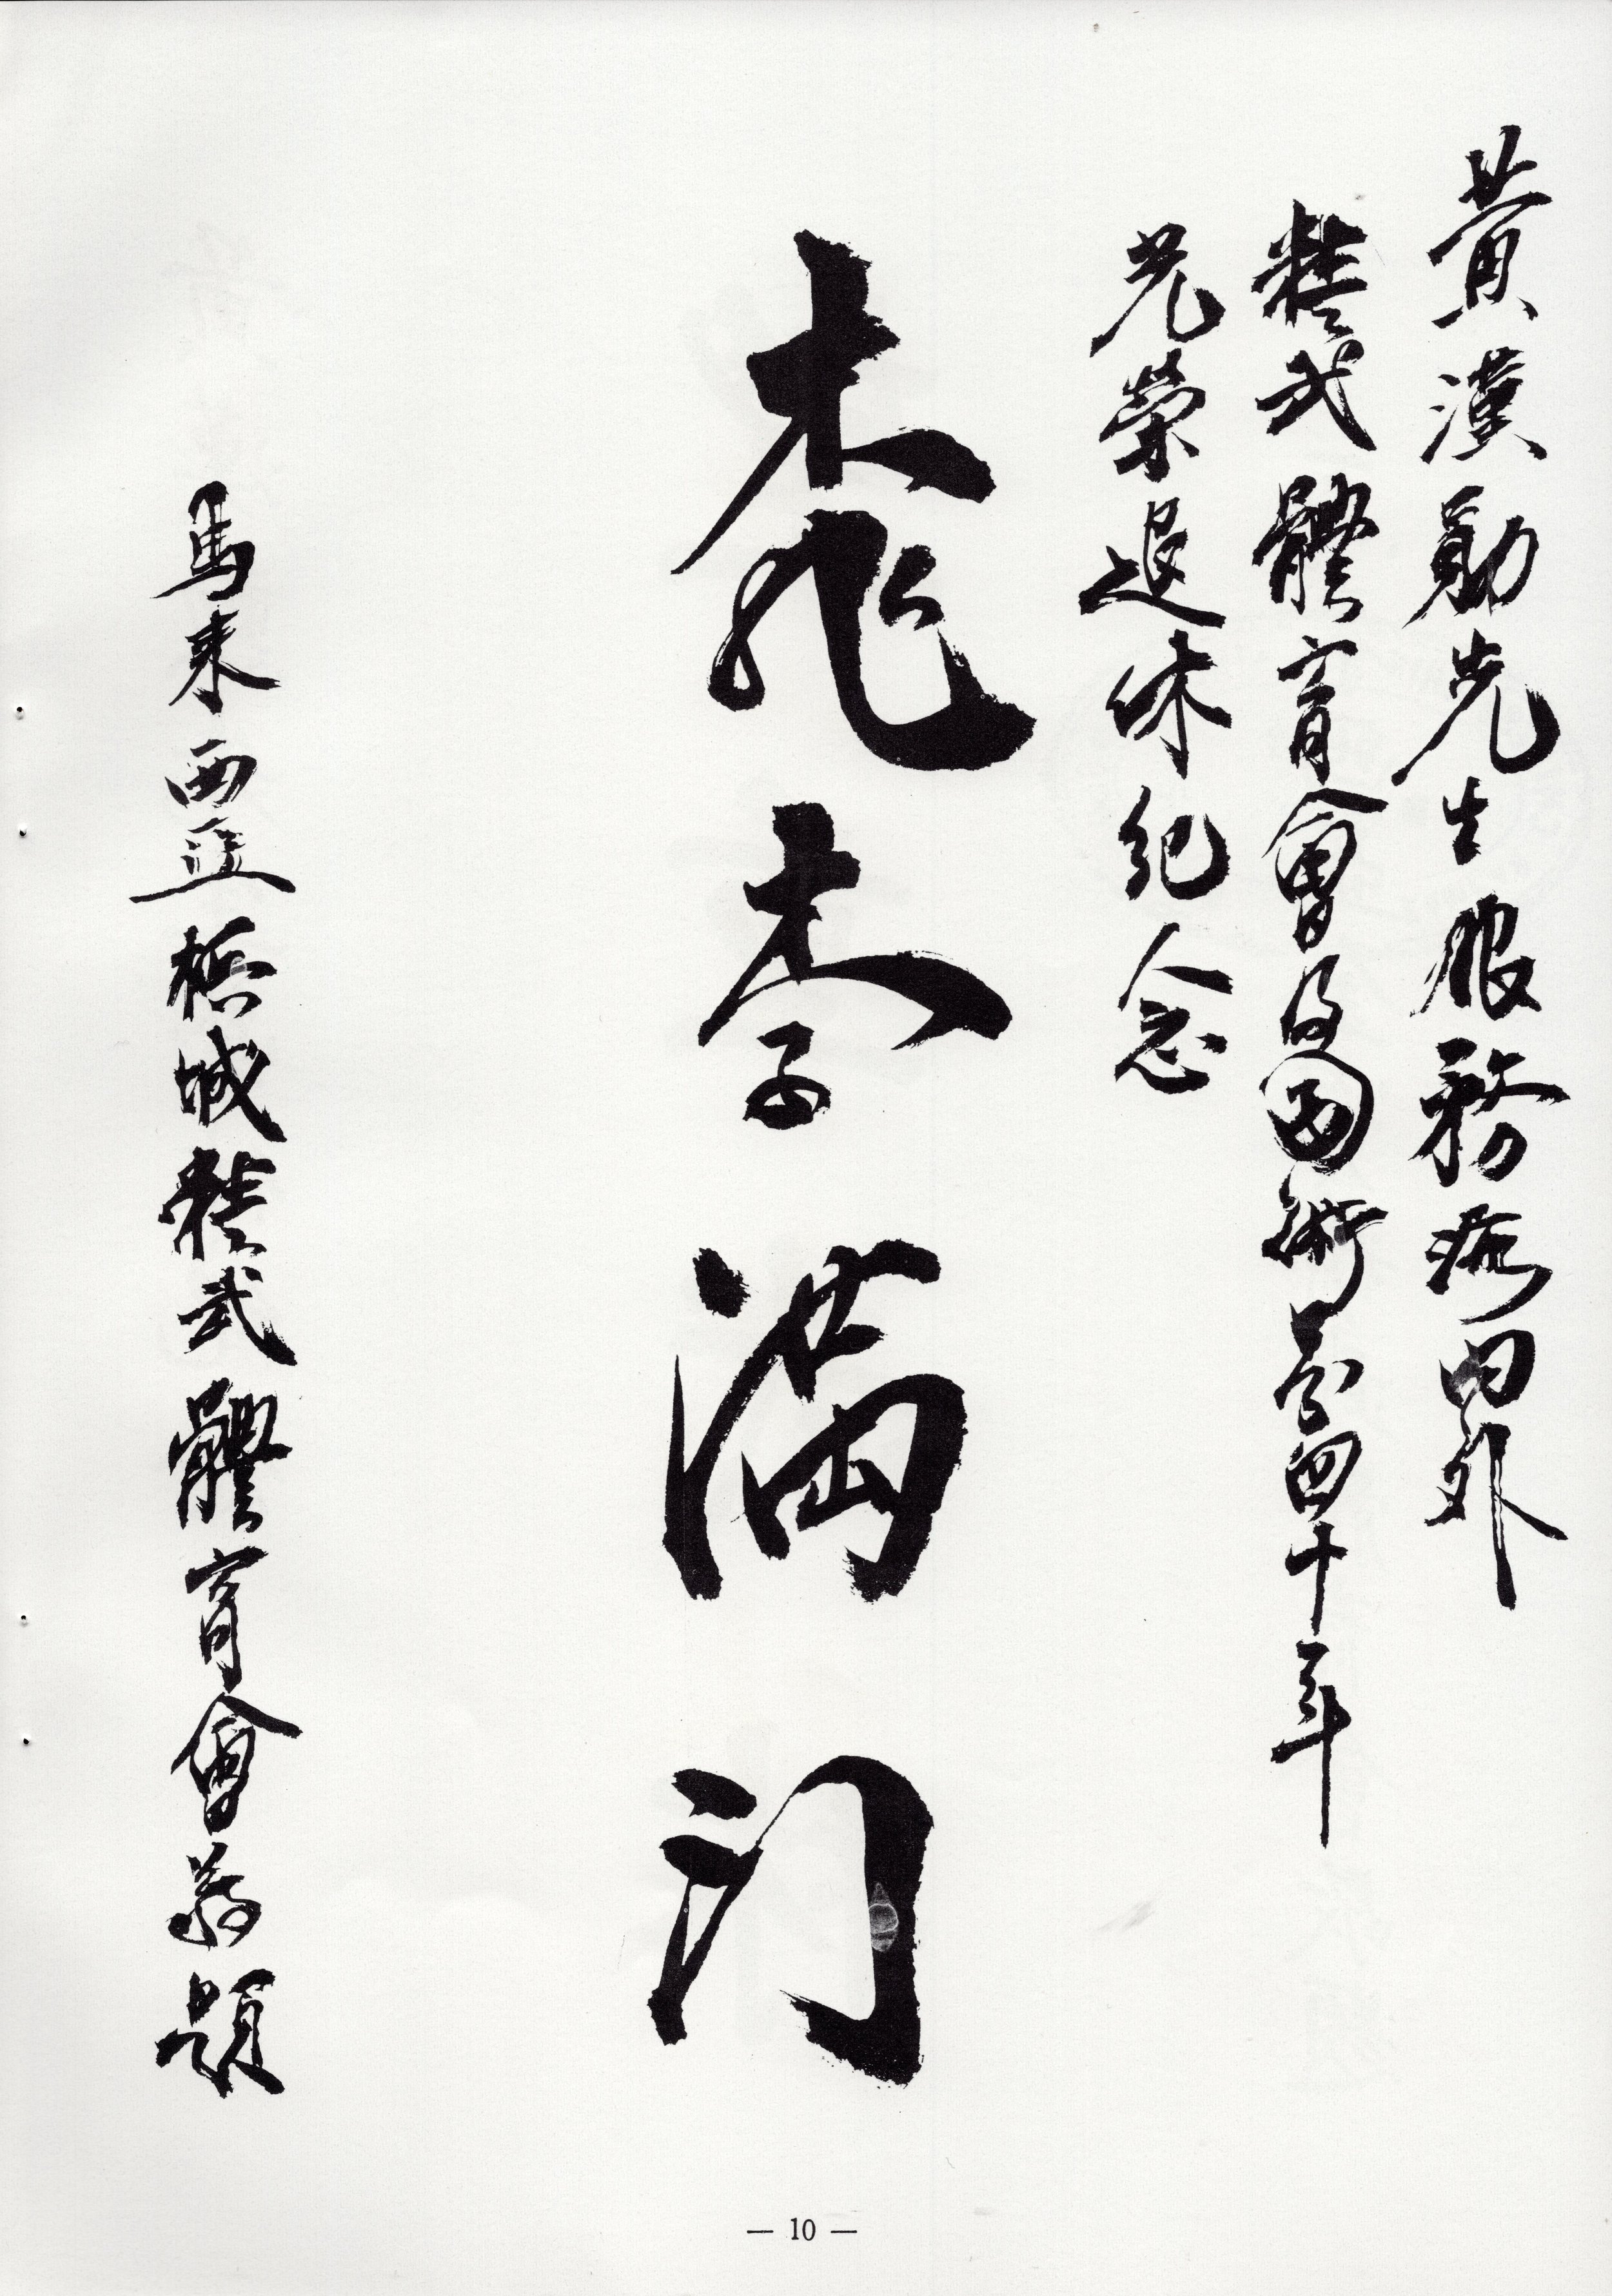 黃漢勛先生服務海內外
精武體育會及國術界四十年
光榮退休紀念
桃李滿门
馬來西亞檳城精武體育會題
— 10 —